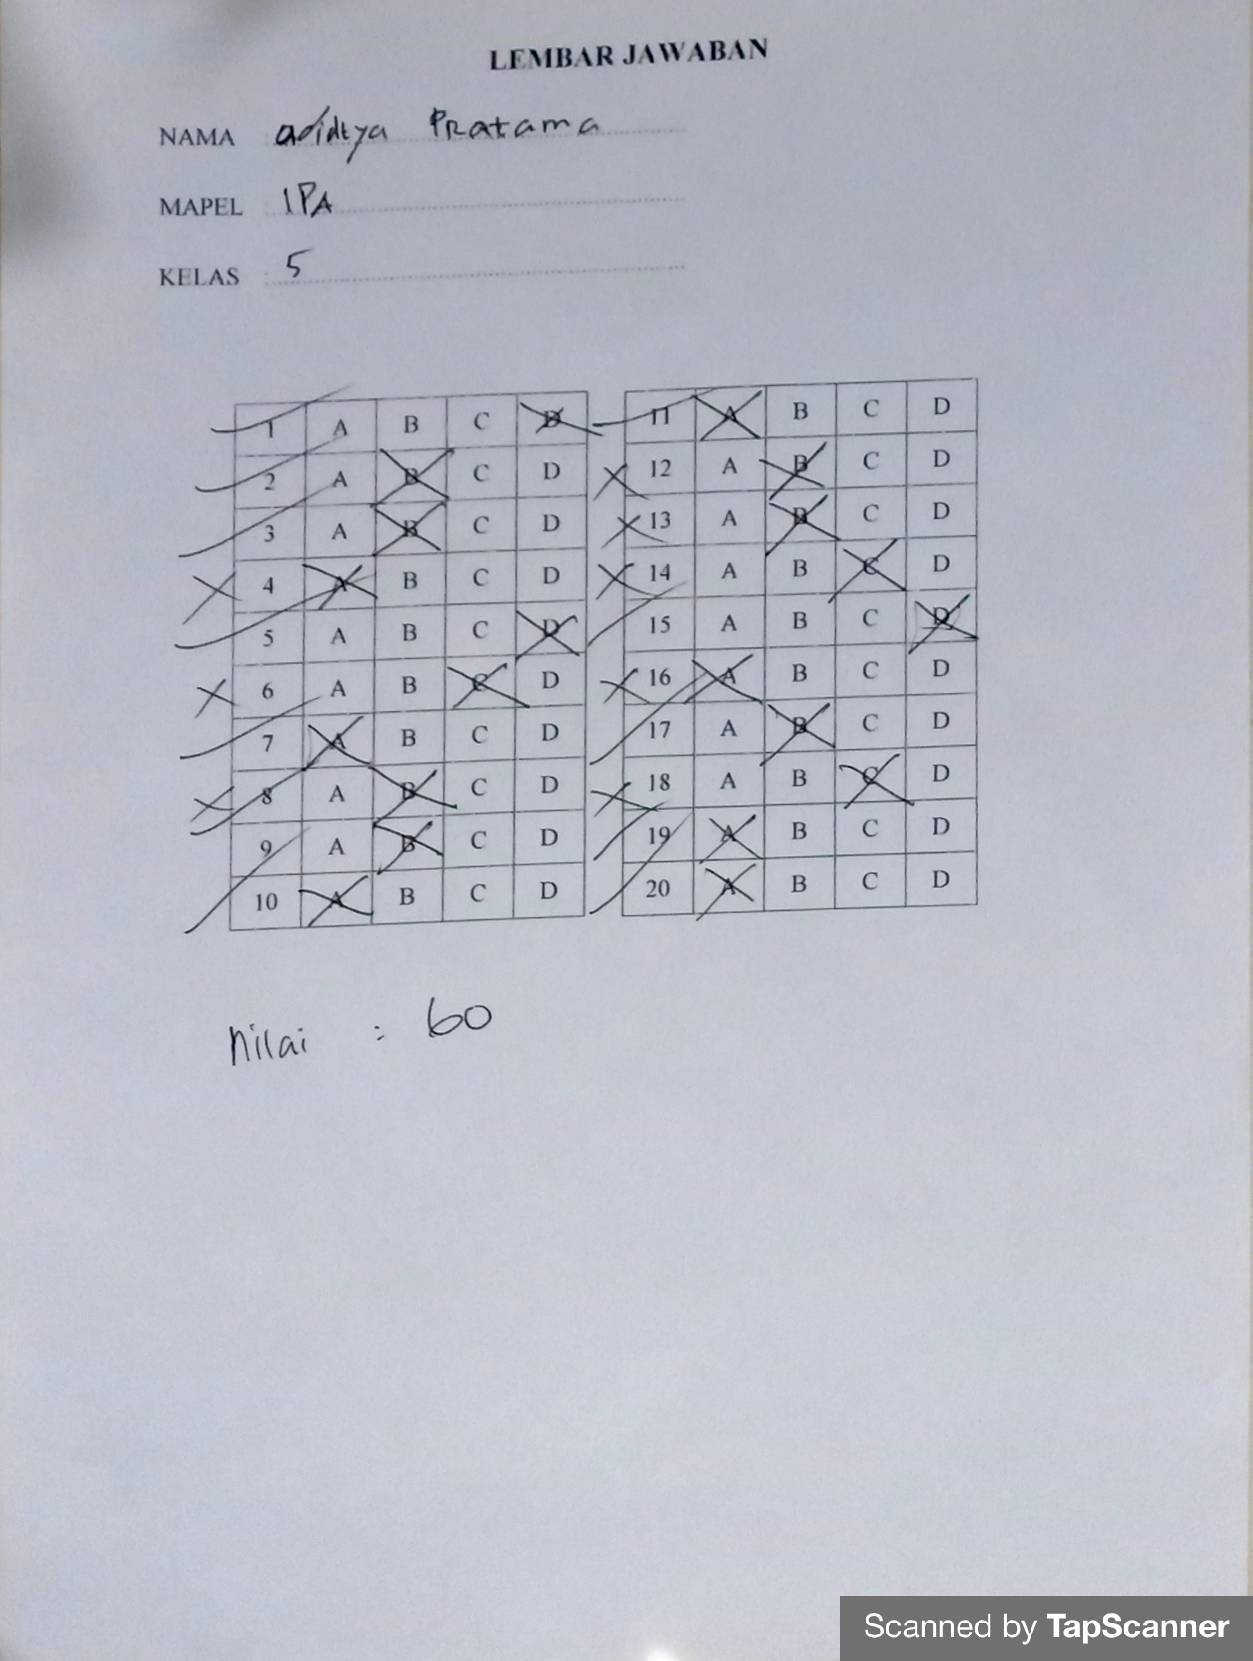 LEMBAR JAWABAN
NAMA adidtya Pratama
MAPEL : IPA
KELAS : 5
1 A B C D 11 A B C D
2 A B C D 12 A B C D
3 A B C D 13 A B C D
4 A B C D 14 A B C D
5 A B C D 15 A B C D
6 A B C D 16 A B C D
7 A B C D 17 A B C D
8 A B C D 18 A B C D
9 A B C D 19 A B C D
10 A B C D 20 A B C D
Nilai : 60
Scanned by TapScanner